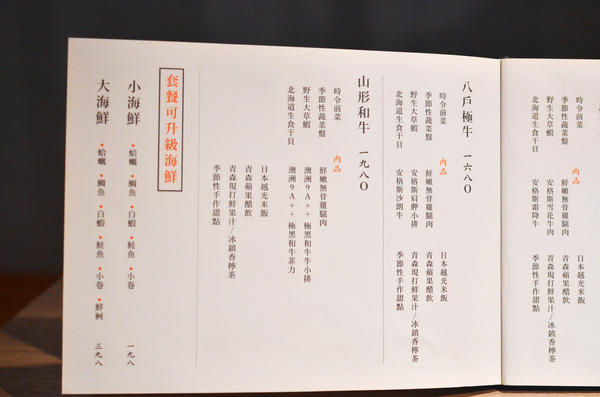 時令前菜
季節性蔬菜盤
野生大草蝦
北海道生食干貝
肉品
鮮嫩無骨雞腿肉
安格斯雪花牛肉
安格斯霜降牛
日本越光米飯
青森蘋果醋飲
青森現打鮮果汁/冰鎮香檸茶
季節性手作甜點
八戶極牛 一六八〇
時令前菜
季節性蔬菜盤
野生大草蝦
北海道生食干貝
肉品
鮮嫩無骨雞腿肉
安格斯肩胛小排
安格斯沙朗牛
日本越光米飯
青森蘋果醋飲
青森現打鮮果汁/冰鎮香檸茶
季節性手作甜點
山形和牛 一九八〇
時令前菜
季節性蔬菜盤
野生大草蝦
北海道生食干貝
肉品
鮮嫩無骨雞腿肉
澳洲9A++極黑和牛牛小排
澳洲9A++極黑和牛菲力
日本越光米飯
青森蘋果醋飲
青森現打鮮果汁/冰鎮香檸茶
季節性手作甜點
套餐可升級海鮮
小海鮮 •蛤蠣 •鯛魚 •白蝦 •鮭魚 •小卷 一九八
大海鮮 •蛤蠣 •鯛魚 •白蝦 •鮭魚 •小卷 •鮮蚵 三九八